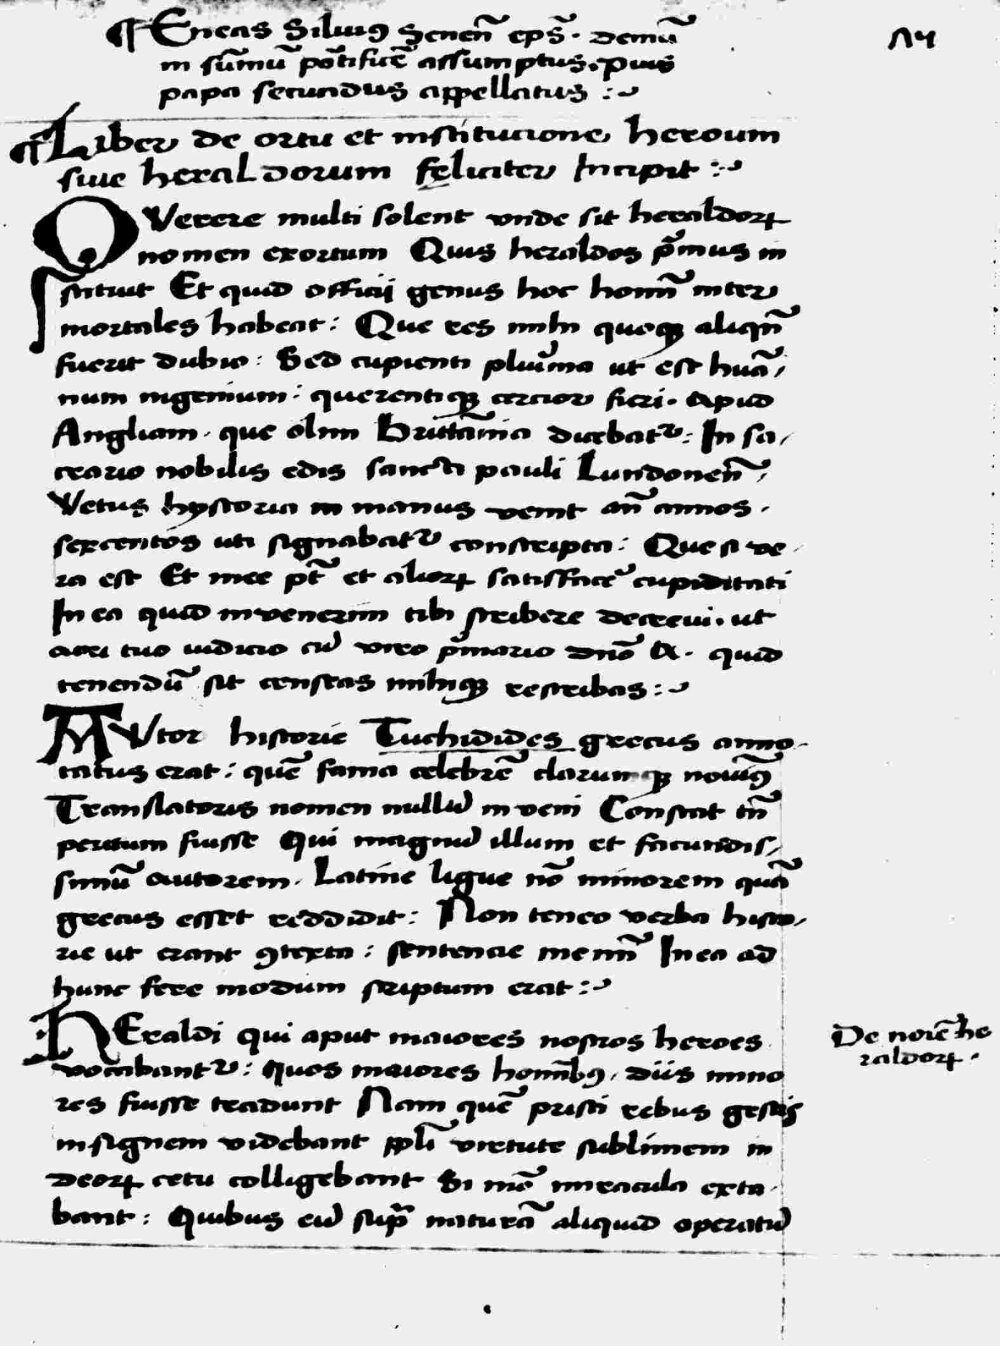 ¶ Eneas Siluiꝰ Senen̄ ep̄s. demū
in sūmū pōtificē assumptus. pius
papa secundus appellatus :~
¶ Liber de ortu et institucione heroum
siue heraldorum feliciter Incipit :~
QVerere multi solent vnde sit heraldoꝝ
nomen exortum Quis heraldos p̄mus in
stituit Et quid officij genus hoc homīn inter
mortales habeat: Que res mihi quoqꝫ aliqn̄
fuerit dubio: Sed cupienti pluīma ut est huā/
num ingenium: querentiqꝫ cercior fieri. Apud
Angliam. que olim Brittānia dicebat᷑: In sa/
crario nobilis edis sancti pauli Lundonen̄,
Vetus hystoria in manus venit an̄ annos.
sexcentos uti signabat᷑ conscripta: Que si ve.
ra est Et mee p̄t et alioꝝ satisfacē cupiditati
In ea quid inuenerim tibi scribere decreui. ut
acri tuo iudicio cū viro p̄mario dn̄o A. quid
tenendū sit censeas mihiqꝫ rescribas :~
AVtor historie Tuchidides grecus anno.
tatus erat: quē fama celebrē clarumqꝫ nouimꝰ
Translatoris nomen nullū inveni Constat tn̄
peritum fuisse Qui magnū illum et facundis/
simū autorem. Latine ligue nō minorem quā
grecus esset reddidit: Non teneo verba histo/
rie ut erant ꝯtexta: sentencie memīn In ea ad
hunc fere modum scriptum erat :~
HEraldi qui aput maiores nostros heroes
vocabant᷑: quos maiores homībꝰ. diis mino
res fuisse tradunt Nam quē pristi rebus gestis
insignem videbant ppl̄i virtute sublimem in
deoꝝ cetu colligebant Si mō miracula exta.
bant: Quibus eiꝰ sup̄ naturā aliquid operatū
De noīe he
raldoꝝ.